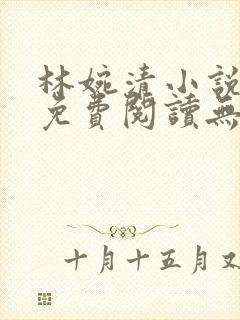 林婉清小說
免費閱讀無
十月十五月又